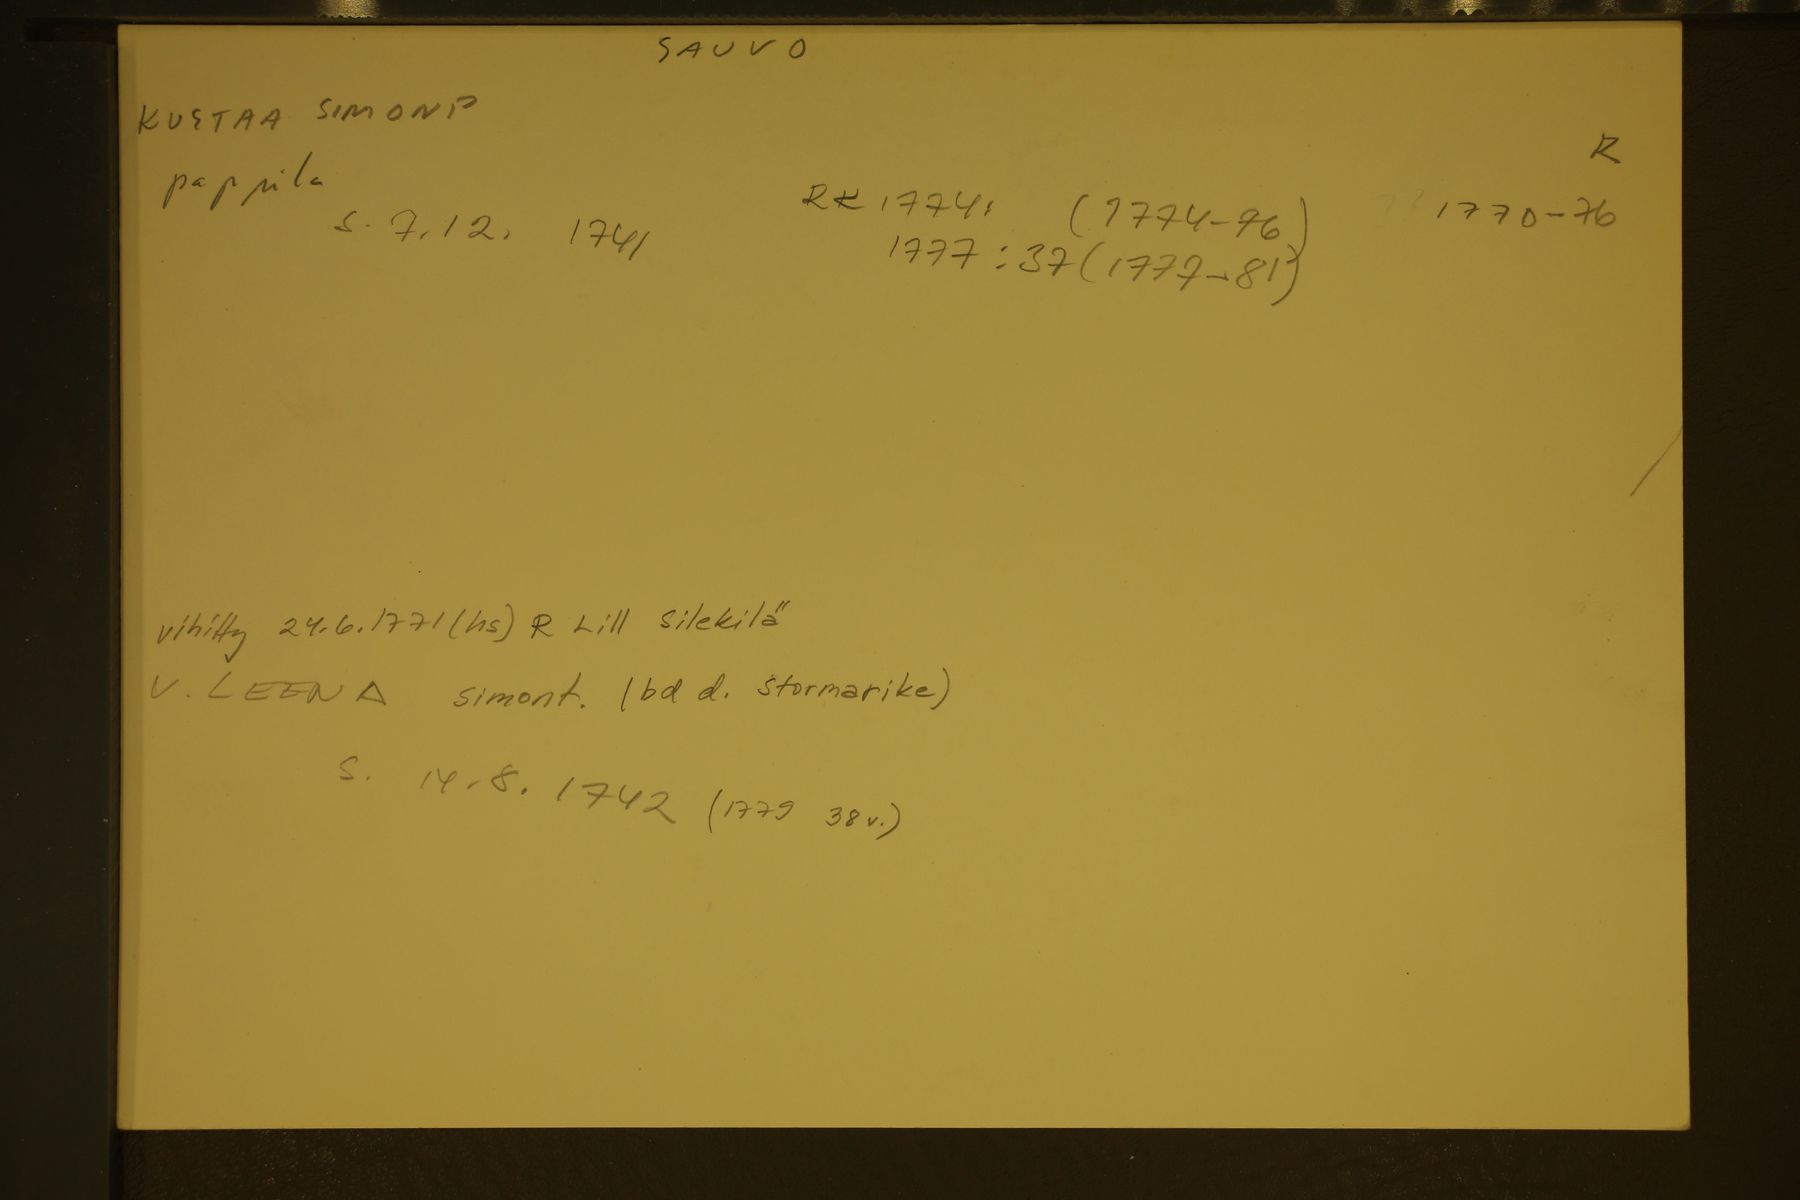 SAUVO
KUSTAA SIMONP
R
pappila
RK 1774: (1774-76) 1770-76
s. 7.12. 1741
1777:37 (1777-81)
vihitty 24.6.1771 (hs) R Lill Silekilä
V. LEENA simont. (bd d. Stormarike)
s. 14.8. 1742 (1779 38 v.)